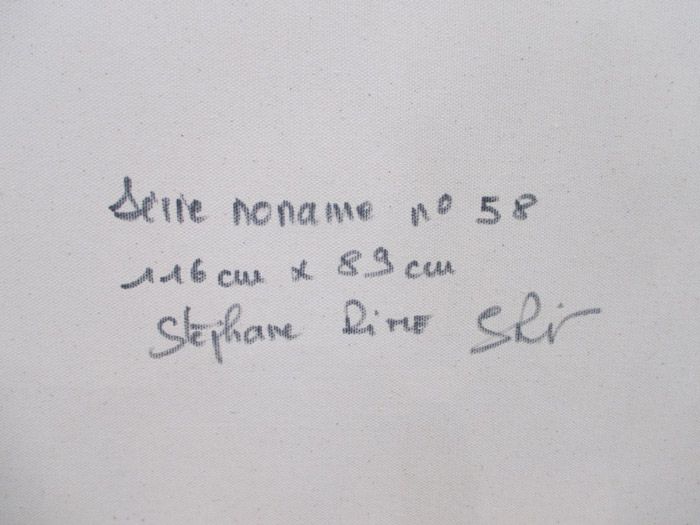 Série noname n° 58
116 cm x 89 cm
Stéphane Rime